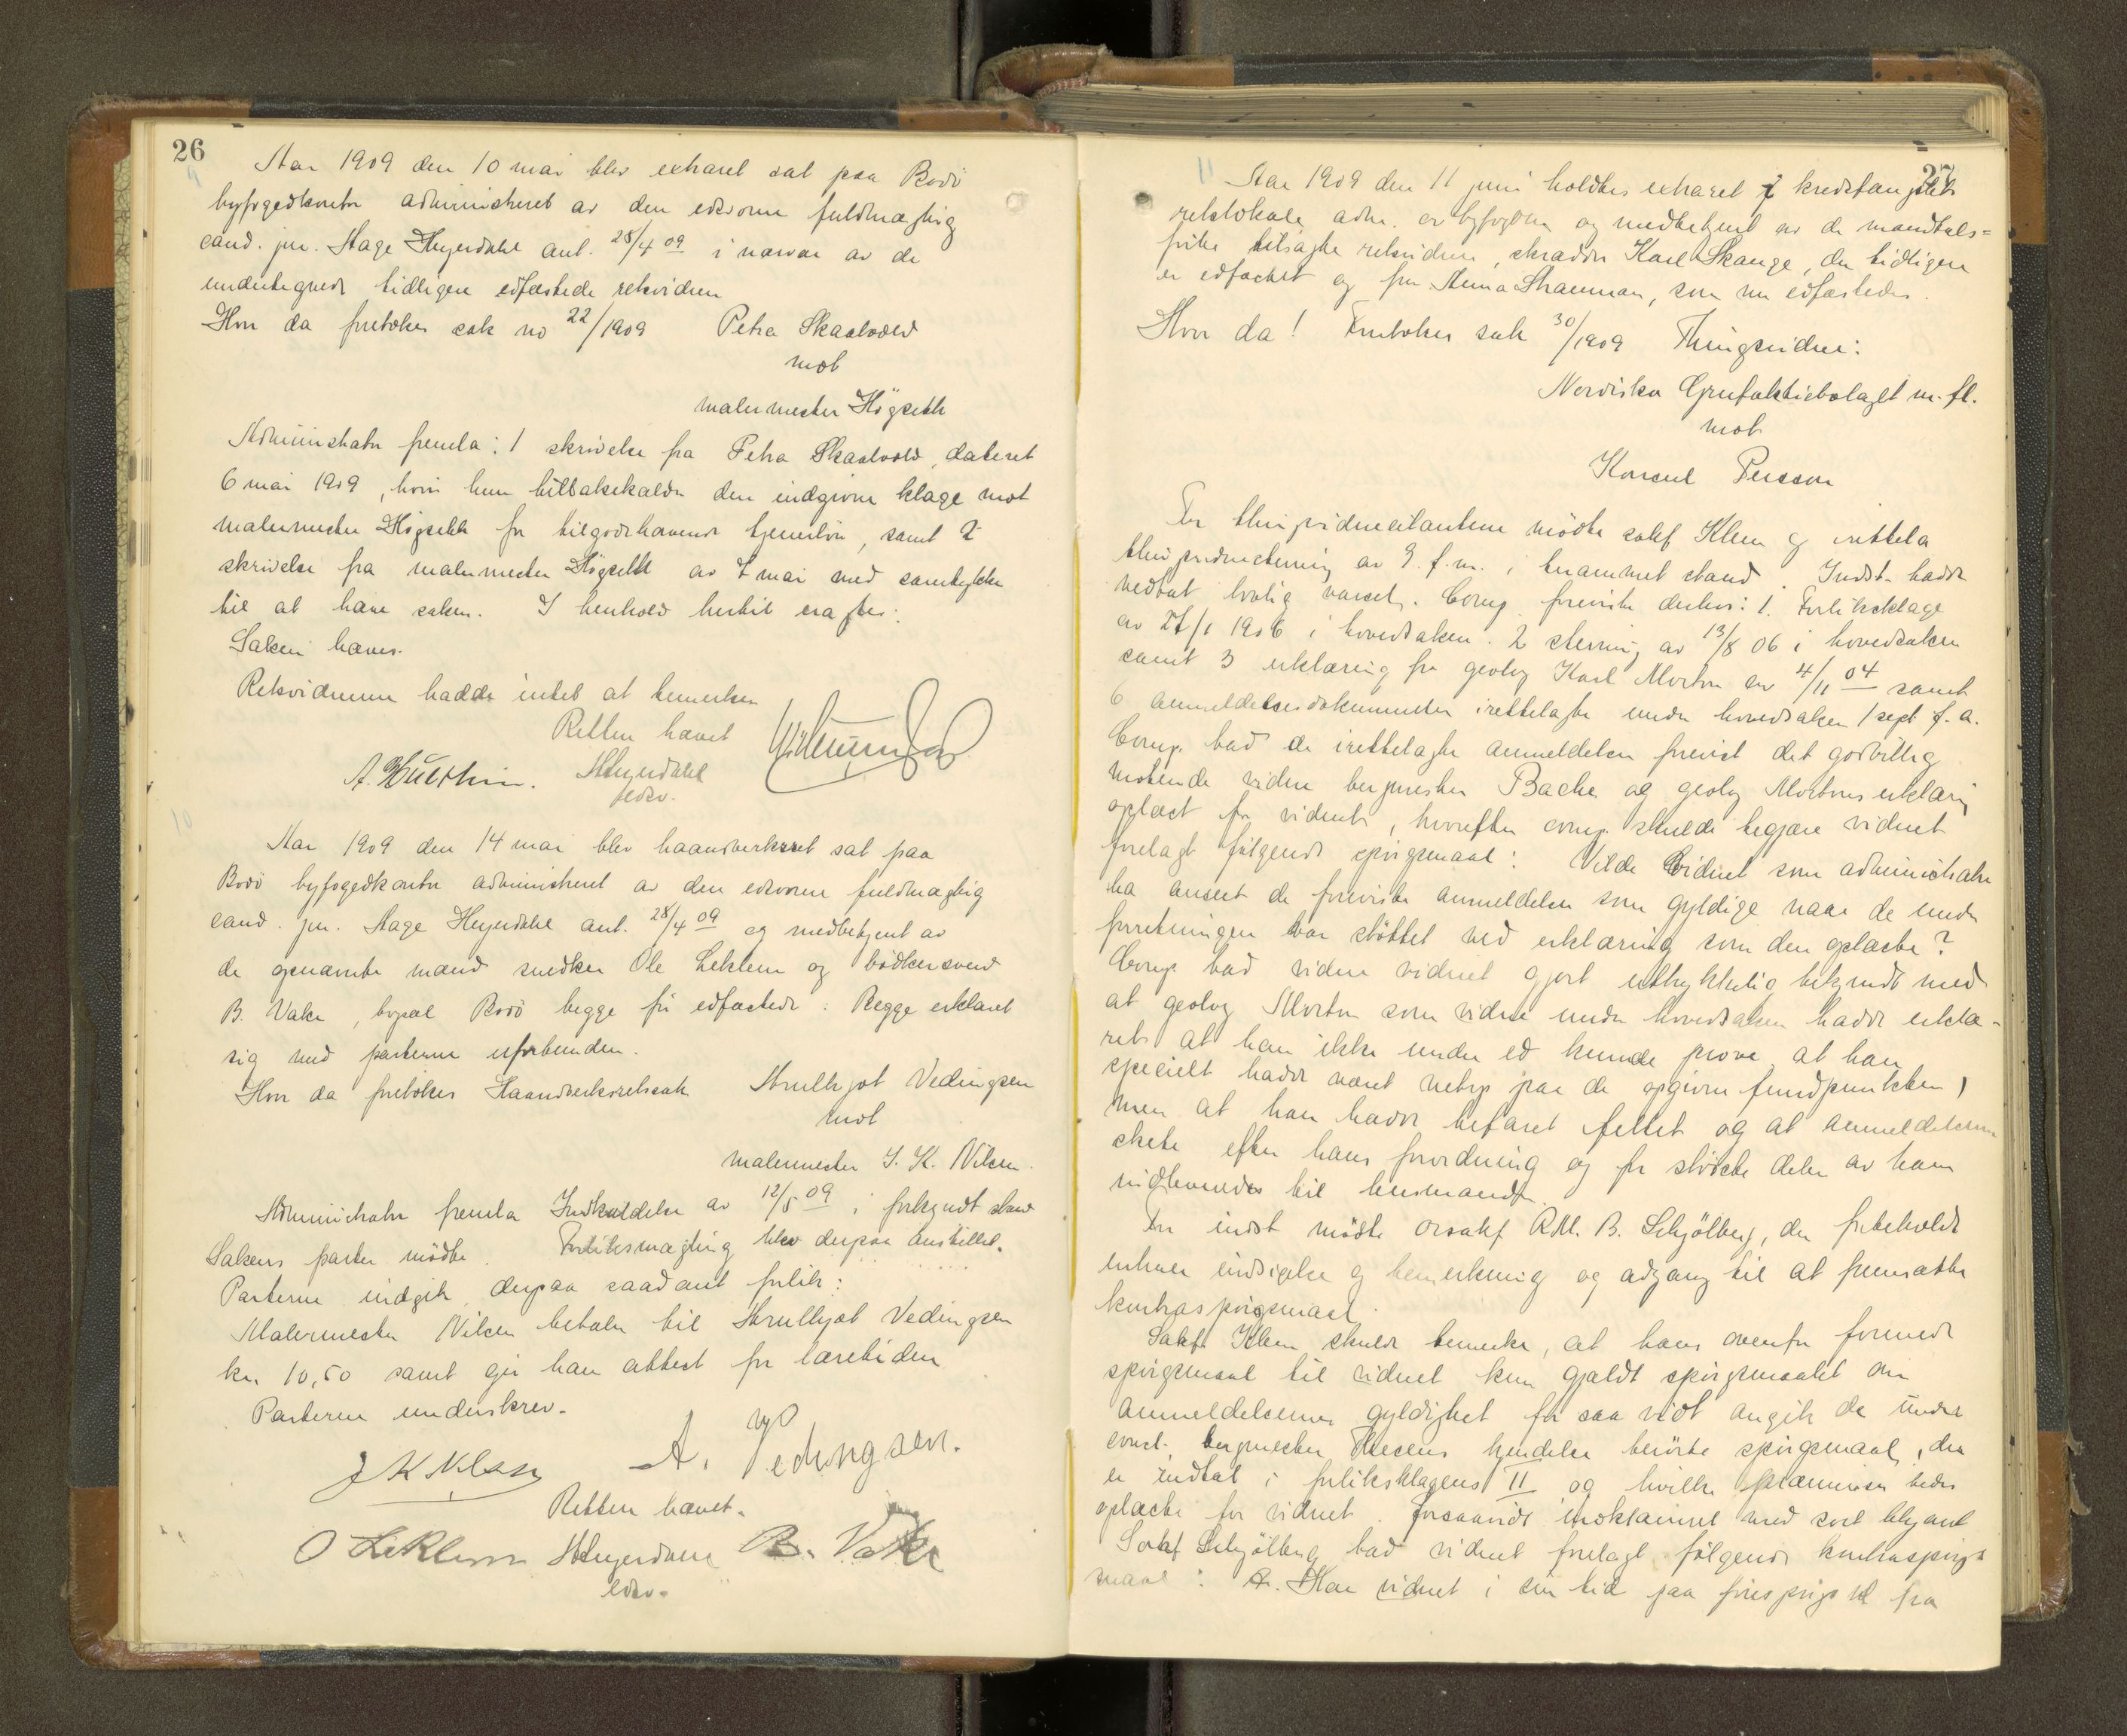 26
Aar 1909 den 10 mai blev extraret sat paa Bodö
byfogedkontor administreret av den edsvorne fuldmægtig
cand. jur. Aage Heyerdahl ant. 28/4 09 i nærvær av de
undertegnede tidligere edfæstede retsvidner
Hvor da foretokes sak no 22/1909 Petra Skaalvold
mot
malermester Högseth
Administrator fremla: 1 skrivelse fra Petra Skaalvold, dateret
6 mai 1909, hvori hun tilbakekalder den indgivne klage mot
malermester Högseth for tilgodehavende tjenerlön, samt 2
skrivelse fra malermester Högseth av 7 mai med samtykke
til at hæve saken. I henhold hertil eragtes:
Saken hæves.
Retsvidnerne hadde intet at bemerke
Retten hævet
A. Hulthin. Heyerdahl
edsv.
10
Aar 1909 den 14 mai blev haandverksret sat paa
Bodö byfogedkontor administreret av den edsvorne fuldmægtig
cand. jur. Aage Heyerdahl ant. 28/4 09 og medbetjent av
de opnævnte mænd snedker Ole Leklem og bödkersvend
B. Vake, bopæl Bodö begge för edfæstede: Begge erklæret
sig med parterne uforbunden.
Hvor da foretokes Haandverksretssak Arnljot Vedingsen
mot
malermester J. K. Nilsen.
Administrator fremla Indkaldelse av 12/5 09 i forkyndt stand
Sakens parter mödte. Forliksmægling blev derpaa anstillet.
Parterne indgik derpaa saadant forlik:
Malermester Nilsen betaler til Arnljot Vedingsen
kr. 10,50 samt gir han attest for læretiden
Parterne underskrev.
J K Nilsen A. Vedingsen.
Retten hævet.
O Leklem Heyerdahl B. Vake
edsv.
27
11 Aar 1909 den 11 juni holdtes extraret i kredsfængslets
retslokale, adm. av byfogden og medbetjent av de mandtals=
förte tilsagte retsvidner, skrædder Karl Skauge, der tidligere
er edfæstet og fru Anna Straumann, som nu edfæstedes.
Hvor da! Foretokes sak 30/1909 Thingsvidne:
Nordiska Grufaktiebolaget m. fl.
mot
Konsul Persson
For thingsvidnecitantene mödte sakf Klem og irettela
thingsvidnestevning av 9. f.m. i berammet stand. Indst. hadde
vedtat lovlig varsel. Comp. foreviste derhos: 1. Forliksklage
av 27/1 1906 i hovedsaken. 2 stevning av 13/8 06 i hovedsaken
samt 3 erklæring fra geolog Karl Morton av 4/11 04 samt
6 anmeldelsesdokumenter irettelagte under hovedsaken 1 sept f. a.
Comp. bad de irettelagte anmeldelser forevist det godvillig
mötende vidne bergmester Bache og geolog Mortons erklæring
oplæst for vidnet, hvorefter comp. skulde begjære vidnet
forelagt fölgende spörgsmaal: Vilde vidnet som administrator
ha anseet de foreviste anmeldelser som gyldige naar de under
forretningen var stöttet ved erklæring som den oplæste?
Comp bad videre vidnet gjort uttrykkelig bekjendt med
at geolog Morton som vidne under hovedsaken hadde erklæ-
ret at han ikke under ed kunde prove at han
specielt hadde været netop paa de opgivne fundpunkter,
men at han hadde befaret feltet og at anmeldelserne
skete efter hans forordning og for störste delen av ham
indleveredes til lensmanden.
For indst mödte orsakf R.M. B. Schjölberg, der forbeholdt
enhver indsigelse og bemerkning og adgang til at fremsætte
kontraspörgsmaal.
Sakf. Klem skulde bemerke, at hans ovenfor formede
spörgsmaal til vidnet kun gjældt spörgsmaalet om
anmeldelsernes gyldighet for saa vidt angik de under
const. bergmester Thesens kjendelse berörte spörgsmaal, der
er indtat i forliksklagens II og hvilke præmisser bedes
oplæste for vidnet. Forsaavidt indklamret med sort blyant
Sakf Schjölberg bad vidnet forelagt fölgende kontraspörgs
maal: Har vidnet i sin tid paa forespörgsel fra